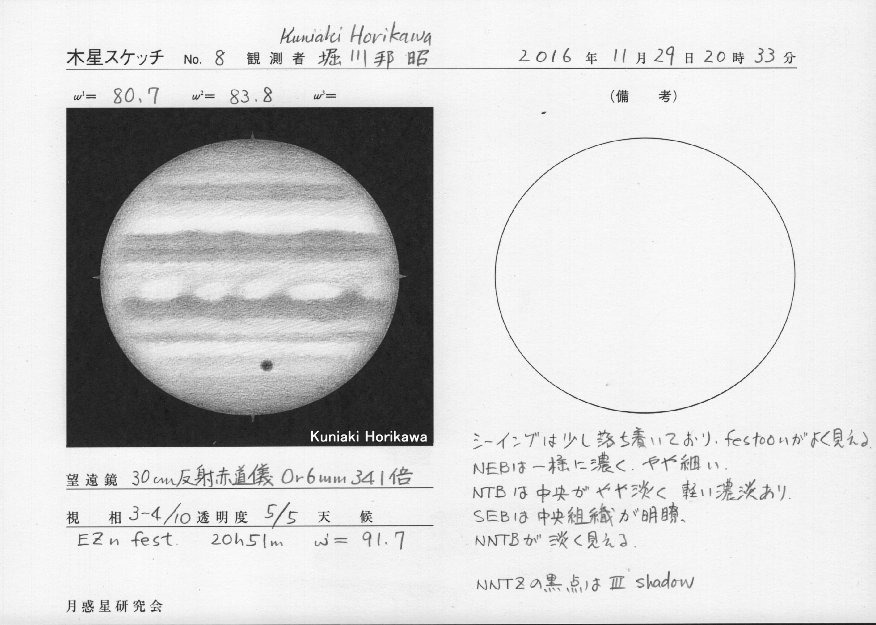 Kuniaki Horikawa
木星スケッチ No. 8 観測者 堀川邦昭 2016年11月29日20時33分
ω¹= 80.7 ω²= 83.8 ω³=
(備 考)
Kuniaki Horikawa
シーイングは少し落ち着いており、festoonがよく見える
NEBは一様に濃く、やや細い.
NTBは中央がやや淡く 軽い濃淡あり.
SEBは中央組織が明瞭、
NNTBが淡く見える.
NNTZの黒点はⅢ shadow
望遠鏡 30cm反射赤道儀 Or6mm 341倍
視 相 3-4/10 透明度 5/5 天 候
EZn fest. 20h51m ω¹= 91.7
月惑星研究会